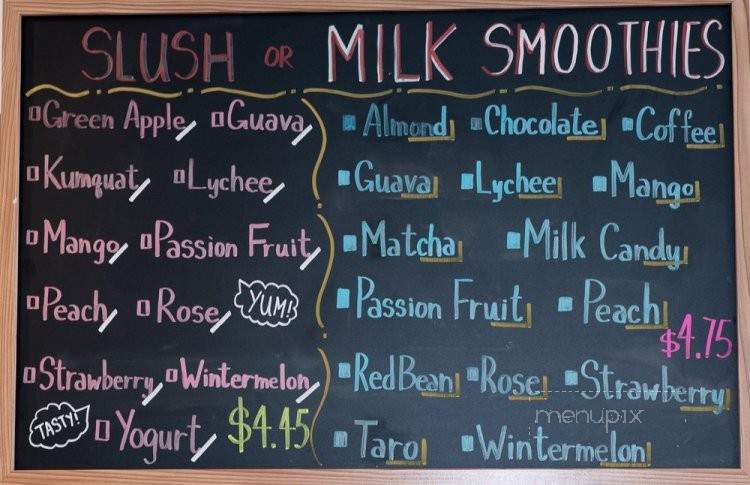 SLUSH OR MILK SMOOTHIES
Green Apple Guava
Kumquat Lychee
Mango Passion Fruit
Peach Rose YUM!
Strawberry Wintermelon
TASTY! Yogurt $4.45
Almond Chocolate Coffee
Guava Lychee Mango
Matcha Milk Candy
Passion Fruit Peach
$4.75
Red Bean Rose Strawberry
menupix
Taro Wintermelon